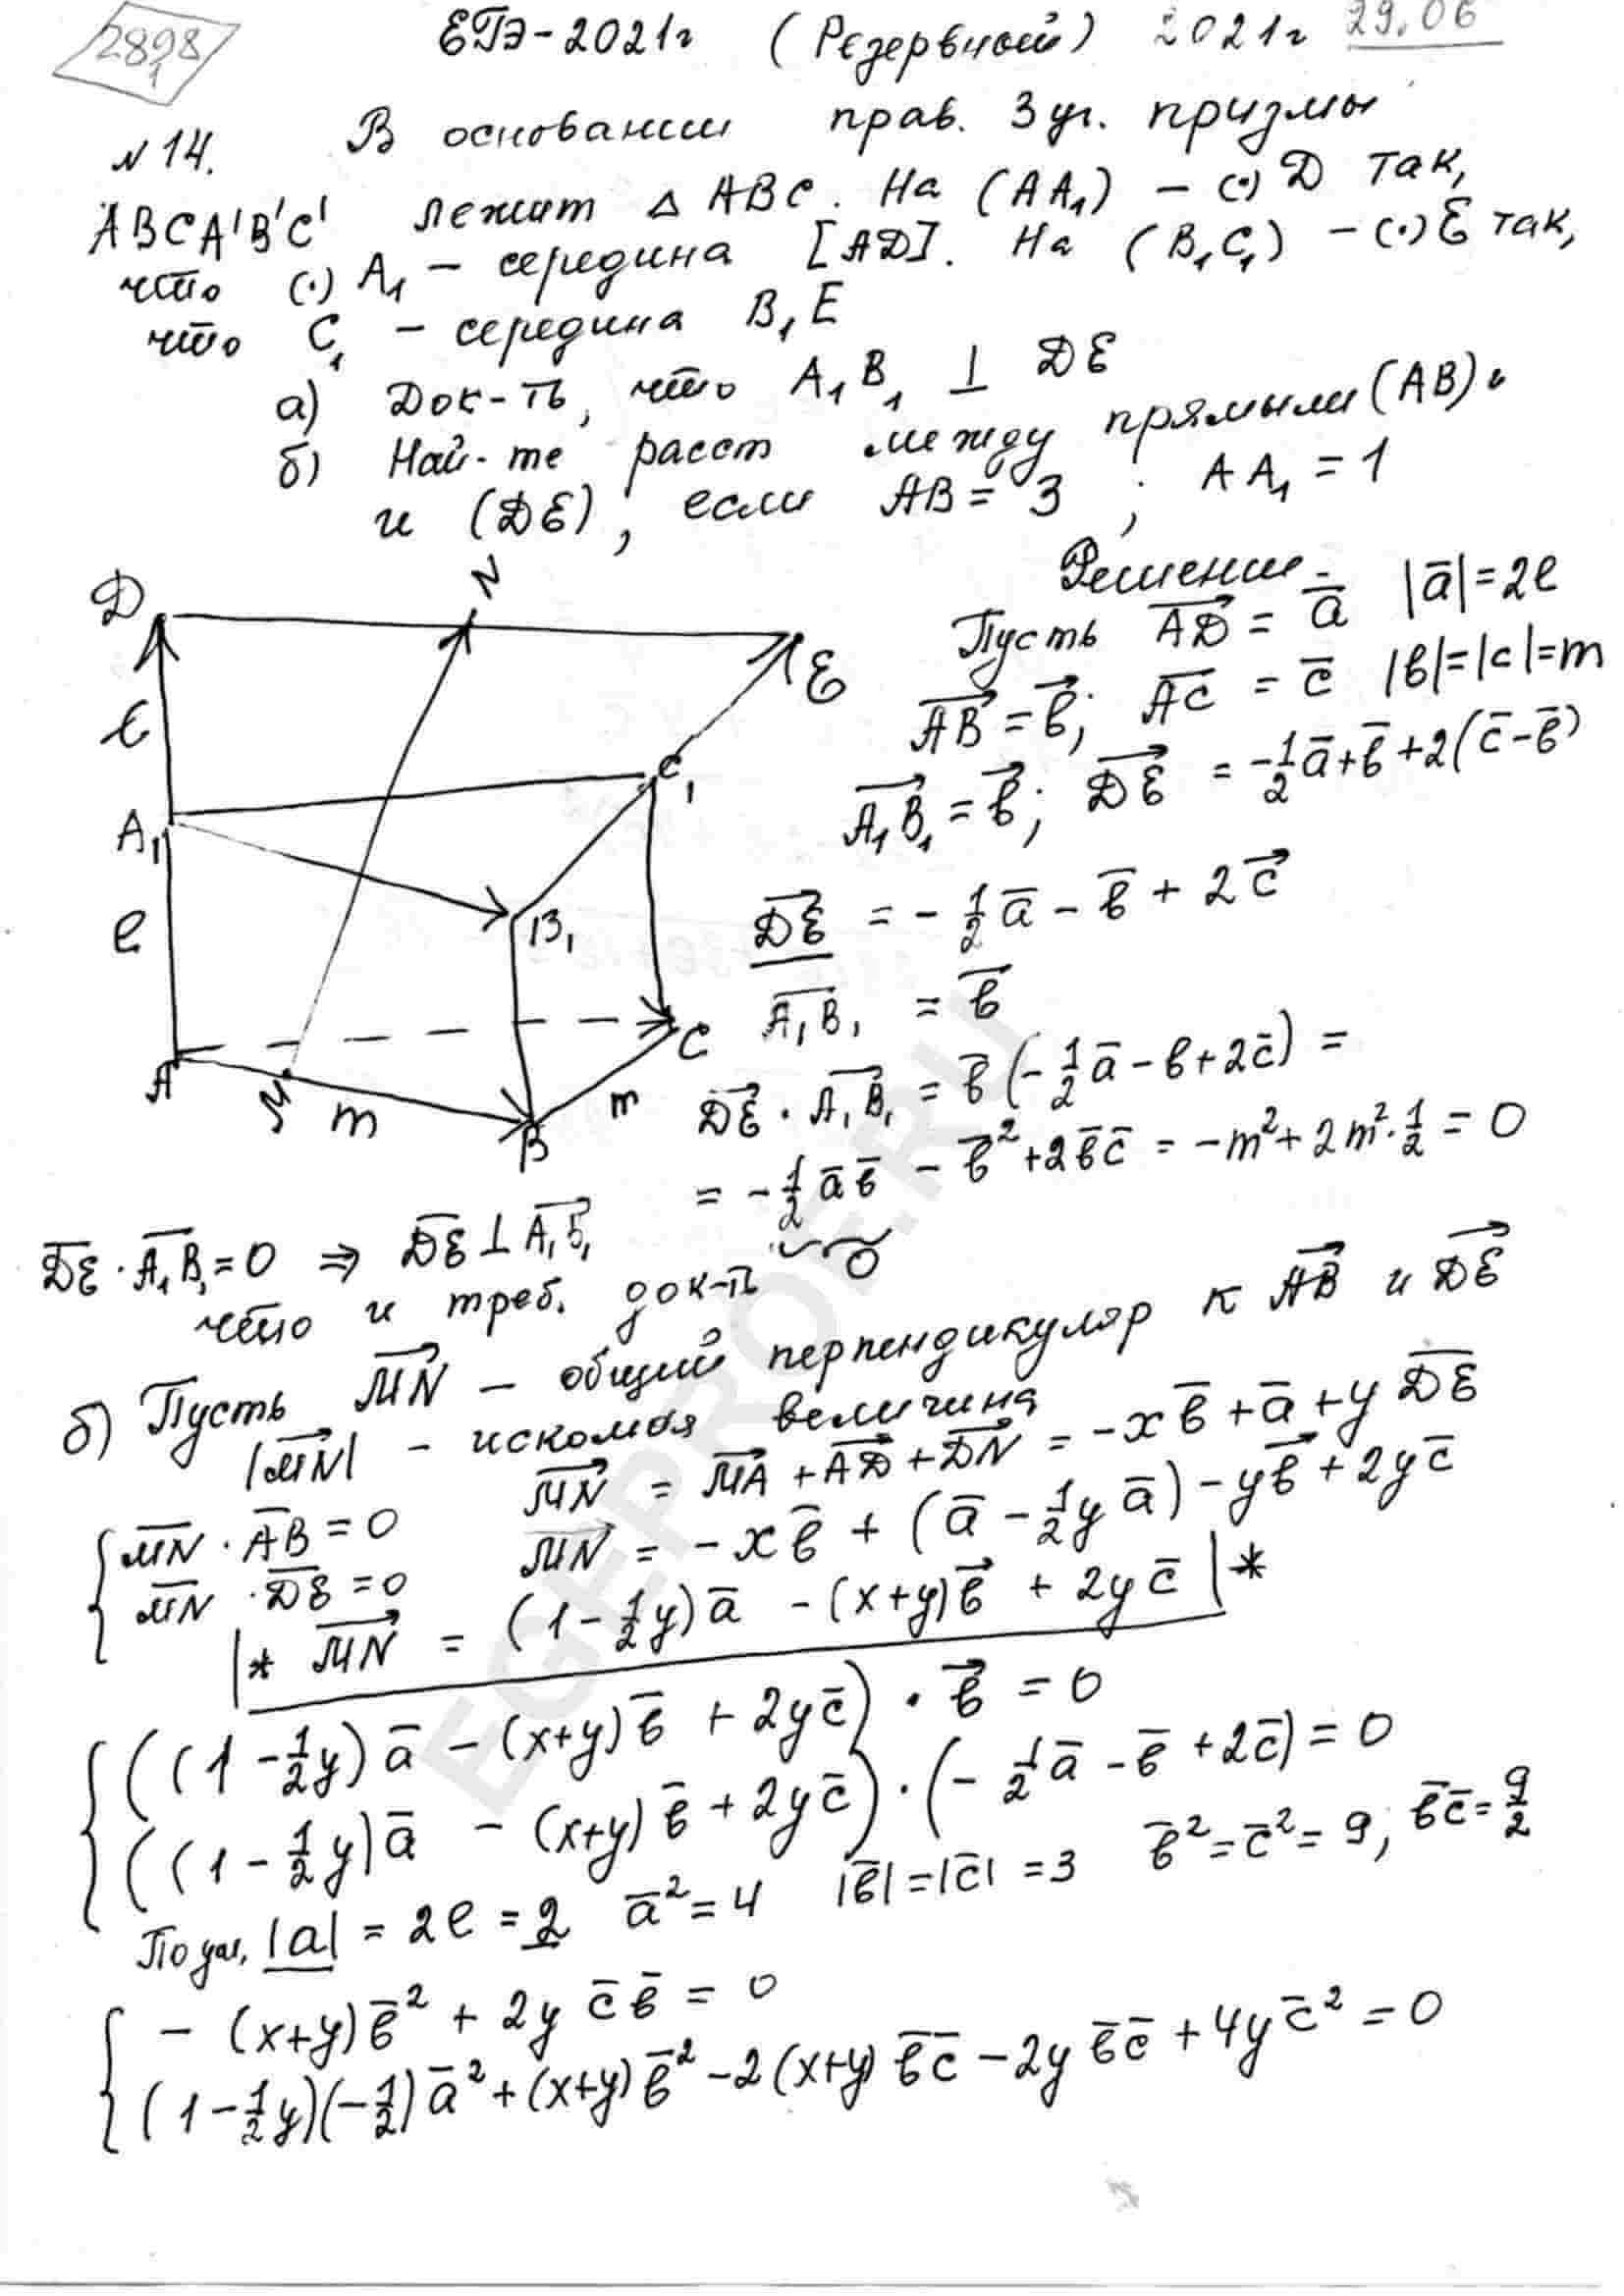 2898
1
ЕГЭ-2021г (Резервный) 2021г 29.06
№14. В основании прав. 3уг. призмы
ABCA'B'C' лежит △ABC. На (AA₁) – (·) D так,
что (·) A₁ – середина [AD]. На (B₁C₁) – (·) E так,
что C₁ – середина B₁E
а) Док-ть, что A₁B₁ ⊥ DE
б) Най-те расст между прямыми (AB) и
и (DE), если AB = 3 ; AA₁ = 1
Решение
D N E
Пусть AD = a |a| = 2l
AB = b; AC = c |b|=|c|=m
A₁B₁ = b; DE = -1/2 a + b + 2(c - b)
l
A₁ C₁
DE = -1/2 a - b + 2c
l B₁
A₁B₁ = b
A M m B m C
DE · A₁B₁ = b(-1/2 a - b + 2c) =
= -1/2 ab - b² + 2bc = -m² + 2m² · 1/2 = 0
0
DE · A₁B₁ = 0 ⇒ DE ⊥ A₁B₁
что и треб. док-ть
б) Пусть MN – общий перпендикуляр к AB и DE
|MN| – искомая величина
MN = MA + AD + DN = -xb + a + yDE
{ MN · AB = 0
MN · DE = 0
MN = -xb + (a - 1/2 ya) - yb + 2yc
|* MN = (1 - 1/2 y)a - (x+y)b + 2yc |*
{ ((1 - 1/2 y)a - (x+y)b + 2yc) · b = 0
((1 - 1/2 y)a - (x+y)b + 2yc) · (-1/2 a - b + 2c) = 0
По усл. |a| = 2l = 2 a² = 4 |b|=|c|=3 b²=c²=9; bc = 9/2
{ -(x+y)b² + 2y cb = 0
(1 - 1/2 y)(-1/2)a² + (x+y)b² - 2(x+y)bc - 2y bc + 4yc² = 0
EGEPROF.RU